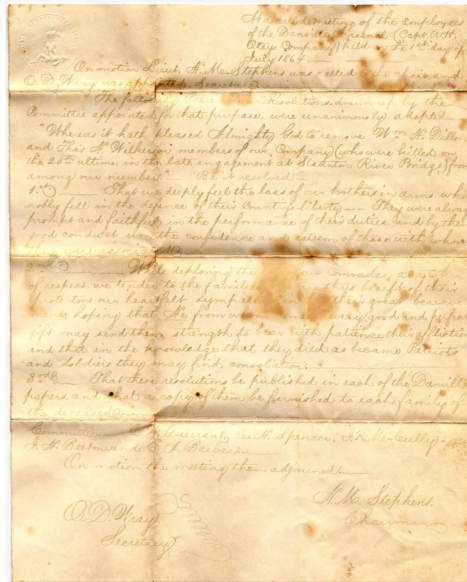 At a called meeting of the Employees
of the Danville Arsenal (Capt. W.H.
Otey Company) held on the 1st day of
July 1864
On motion Lieut. H. M. Stephens was called to the chair and
O. D. Wray was appointed Secretary
The following Resolutions drawn up by the
Committee appointed for that purpose, were unanimously adopted
"Whereas it hath pleased Almighty God to remove Wm H. Dillon
and Thos H. Wilkerson members of our Company (who were killed on
the 25th ultimo, in the late engagement at Staunton River Bridge) from
among our number Be it resolved
1st That we deeply feel the loss of our brothers in arms who
nobly fell in the defence of their Country's They were always
prompt and faithful in the performance of their duties and by their
good conduct won the confidence of those with whom
2nd While deploring the Comrades, as a token
of respect, we tender to the families of their
our heartfelt in their great
hoping that He from whom every good and perfect
gift may send them strength to bear with patience their affliction
and that in the knowledge that they died as became Patriots
and Soldiers they may find consolation.
3rd That these resolutions be published in each of the Danville
papers and that a copy of them be furnished to each family of
the deceased
Committee Spencer,
and Barber
On motion the meeting then adjourned
H. M. Stephens.
Chairman
O. D. Wray
Secretary